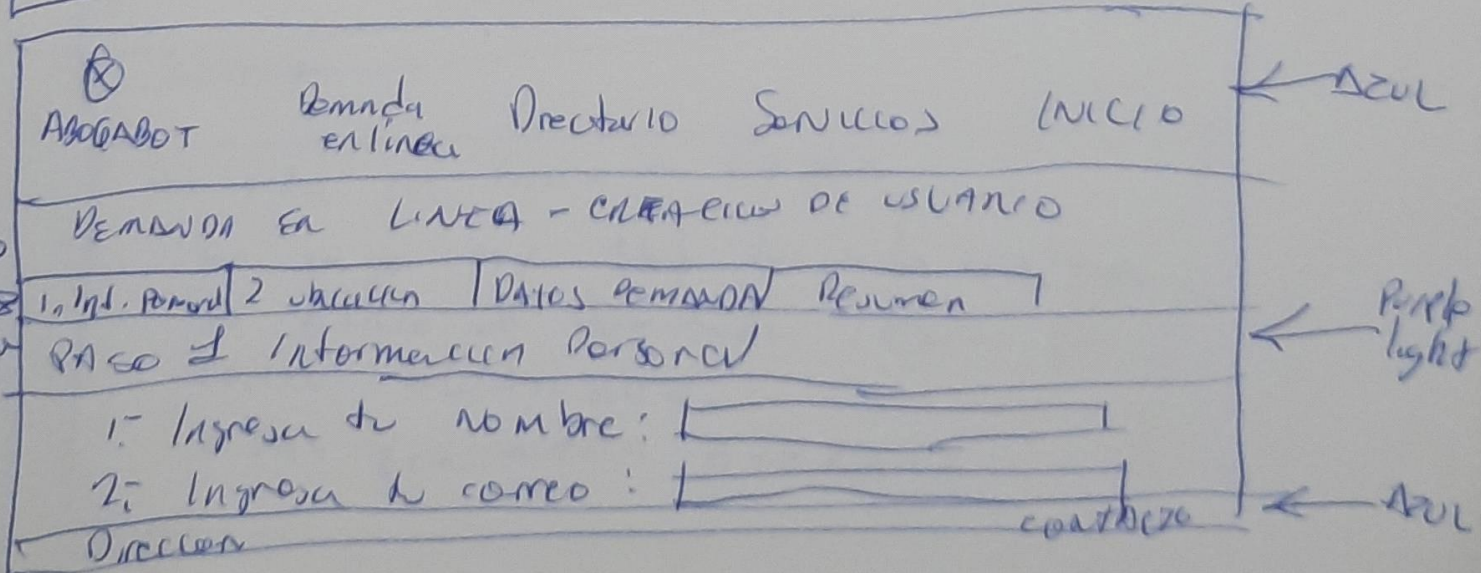 ABOGABOT Demnda en línea Directorio Servicios INICIO
AZUL
DEMANDA En LíNEA - CREACION DE USUARIO
1. Inf. Personal 2 ubicación DATOS DEMANDA Resumen
Purple light
PASO 1 Información Personal
1.- Ingresa tu nombre:
2.- Ingresa tu correo:
AZUL
Dirección contacto